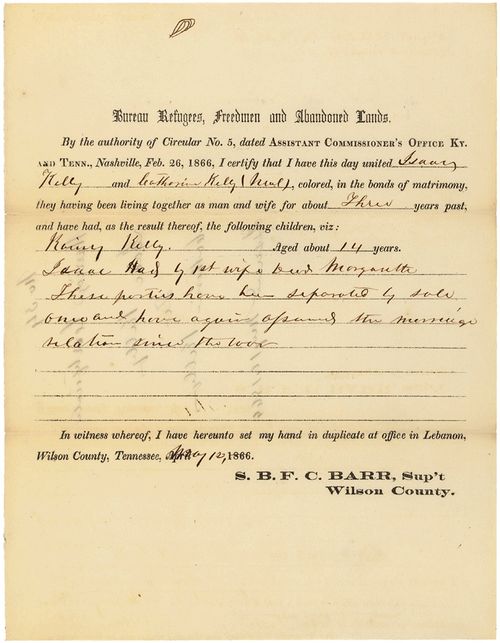 Bureau Refugees, Freedmen and Abandoned Lands.
By the authority of Circular No. 5, dated ASSISTANT COMMISSIONER'S OFFICE KY.
AND TENN., Nashville, Feb. 26, 1866, I certify that I have this day united Isaac
Kelly and Catharine Kelly (Mul), colored, in the bonds of matrimony,
they having been living together as man and wife for about Three years past,
and have had, as the result thereof, the following children, viz:
Kelly. Aged about 14 years.
Isaac Had by 1st wife
These parties have been separated by sale
once and have again assumed the marriage
relation since the war
In witness whereof, I have hereunto set my hand in duplicate at office in Lebanon,
Wilson County, Tennessee, May 12, 1866.
S. B. F. C. BARR, Sup't
Wilson County.